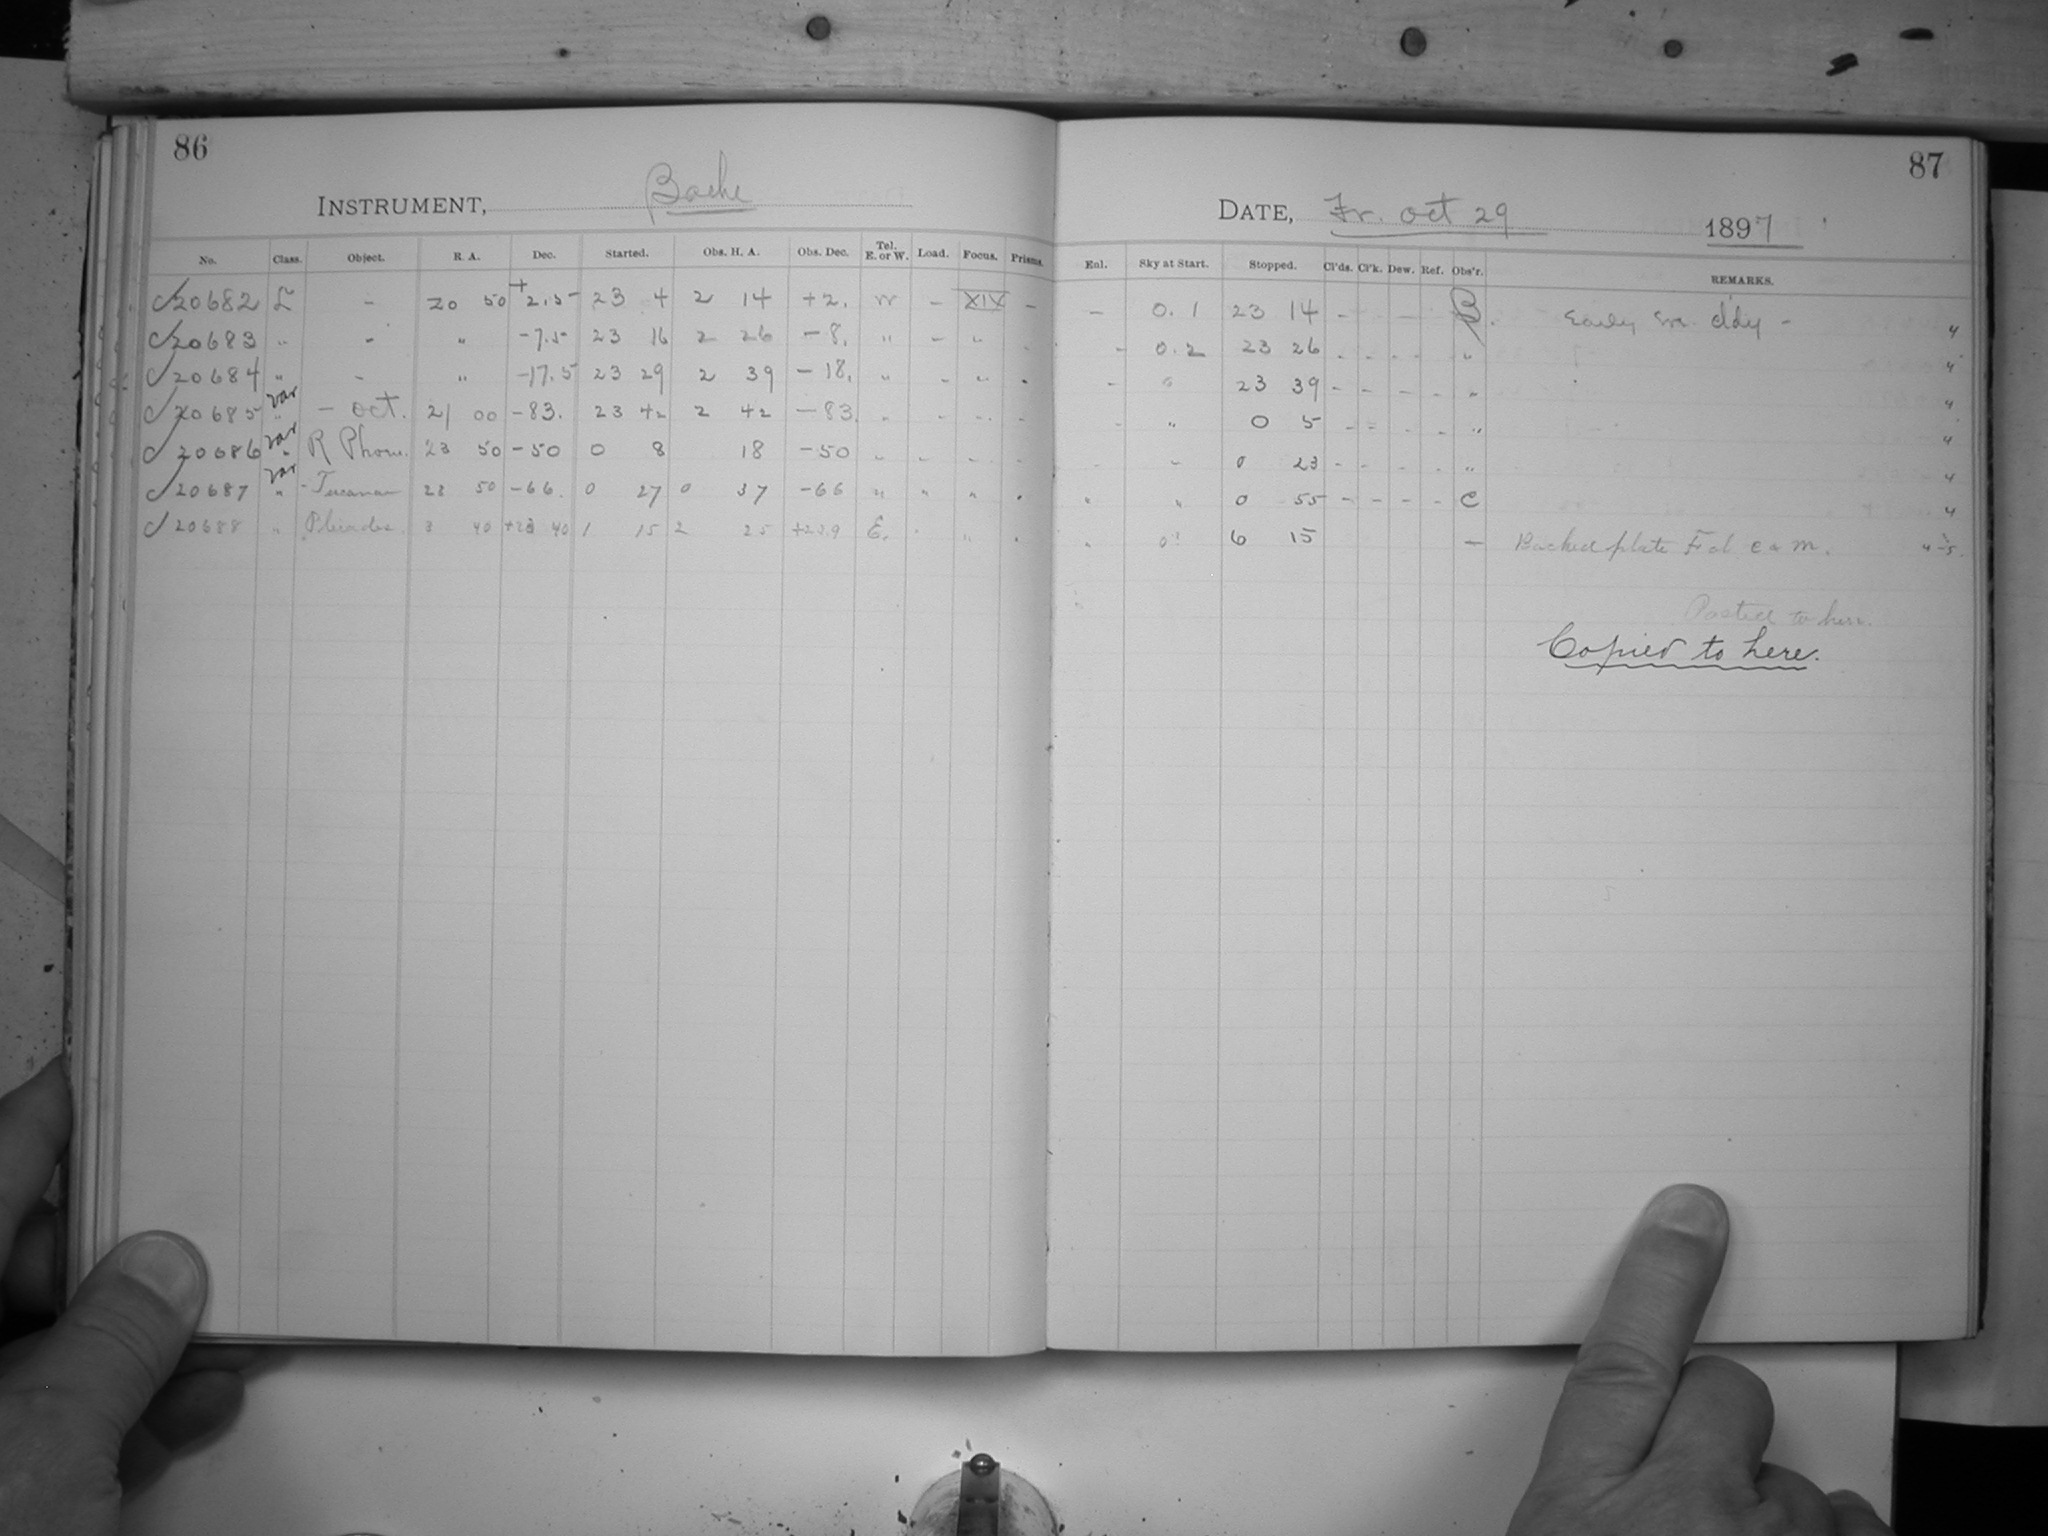 86
INSTRUMENT, Bache
No. Class. Object. R. A. Dec. Started. Obs. H. A. Obs. Dec. Tel. E. or W. Load. Focus. Prisms.
20682 L - 20 50 +2.5 23 4 2 14 +2. W - XIX -
20683 " - " -7.5 23 16 2 26 -8. " - " -
20684 " - " -17.5 23 29 2 39 -18. " - " -
20685 var " - Oct. 21 00 -83. 23 42 2 42 -83. " - - -
20686 var " R Phoen. 23 50 -50 0 8 18 -50 " - - -
20687 var " - Tucanae 23 50 -66. 0 27 0 37 -66 " " " "
20688 " Pleiades. 3 40 +23 40 1 15 2 25 +23.9 E. - " "
87
DATE, Fr. Oct 29 1897
Enl. Sky at Start. Stopped. Cl'ds. Cl'k. Dew. Ref. Obs'r. REMARKS.
- 0.1 23 14 - - - - B. Early Eve. cldy - 4
- 0.2 23 26 - - - - " 4
- 0 23 39 - - - - " 4
- " 0 5 - = - - " 4
- " 0 23 - - - - " 4
" " 0 55 - - - - C 4
" 0? 6 15 - Backed plate F cl. C & M.
Posted to here.
Copied to here.